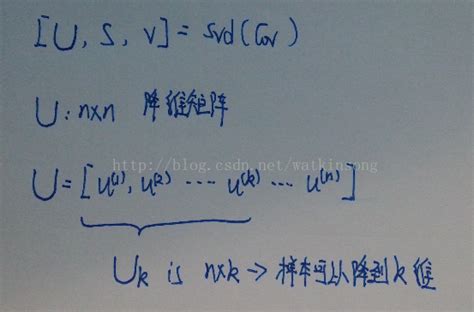 [U, S, V] = svd(Cov)
U: n×n 降维矩阵
http://blog.csdn.net/watkinsong
U = [u⁽¹⁾, u⁽²⁾ ---- u⁽ᵏ⁾ --- u⁽ⁿ⁾]
Uk is n×k -> 样本可以降到k维